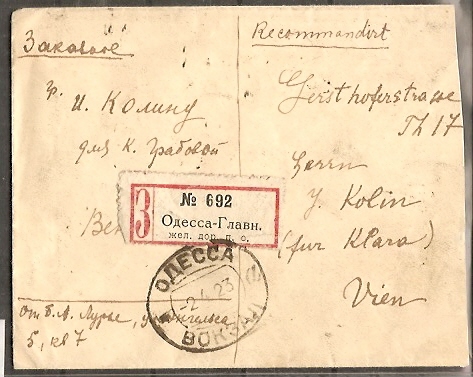 Заказное
Recommandirt
гр.
И. Колину
для К. Грабовой
Gersthoferstrasse
Th 17
Herrn
J. Kolin
(fur Klara)
Vien
З
№ 692
Одесса-Главн.
жел. дор. п. о.
ОДЕССА
2.4.23
ВОКЗАЛ
от Б. Л. Лурье,
5, кв 7